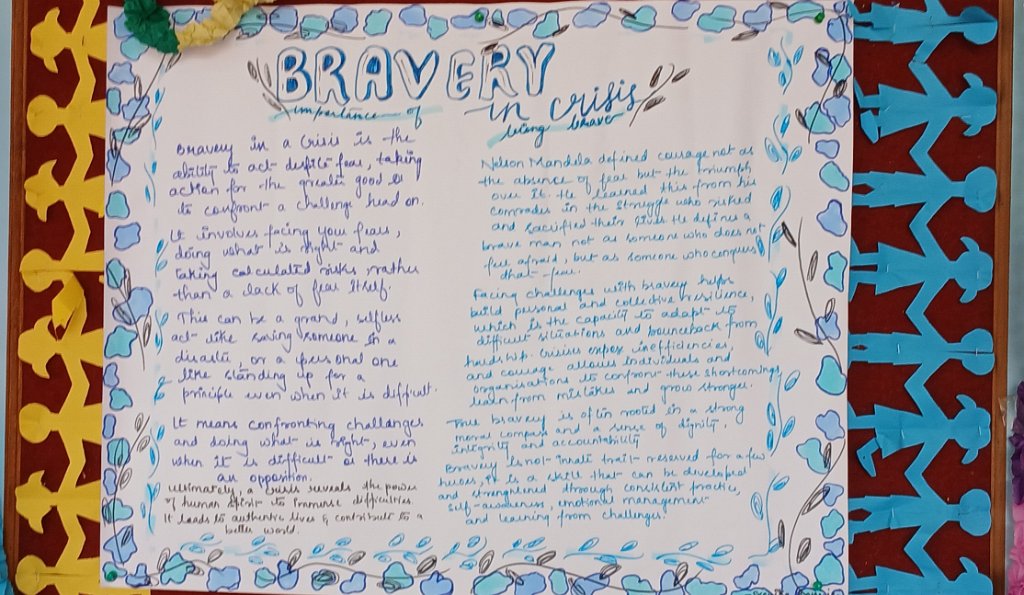 BRAVERY
in crisis
importance of
being brave
Bravery in a Crisis is the
ability to act despite fear, taking
action for the greater good &
to confront a challenge head on.
It involves facing your fears,
doing what is right and
taking calculated risks, rather
than a lack of fear itself.
This can be a grand, selfless
act like saving someone in a
disaster, or a personal one
like standing up for a
principle even when it is difficult.
It means confronting challanges
and doing what is right, even
when it is difficult or there is
an opposition.
Ultimately, a crisis reveals the power
of human spirit to immense difficulties.
It leads to authentic lives & contribute to a
better world.
Nelson Mandela defined courage not as
the absence of fear but the triumph
over it. He learned this from his
comrades in the struggle who risked
and sacrified their lives. He defines a
brave man not as someone who does not
feel afraid, but as someone who conquers
that fear.
Facing challenges with bravery helps
build personal and collective resilience,
which is the capacity to adapt to
difficult situations and bounceback from
hardship. Crises expose inefficiencies,
and courage allows individuals and
organisations to confront these shortcomings,
learn from mistakes and grow stronger.
True bravery is often rooted in a strong
moral compass and a sense of dignity,
integrity and accountability
Bravery is not innate trait reserved for a few
heroes, it is a skill that can be developed
and strenghtened through consistent practice,
self-awareness, emotional management
and learning from challenges.